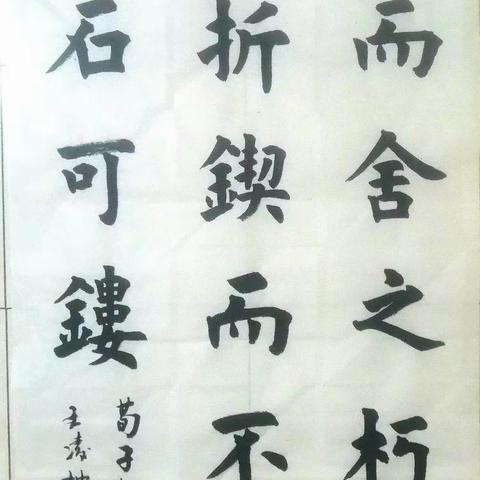 而舍之朽
折鍥而不
石可鏤
荀子
王